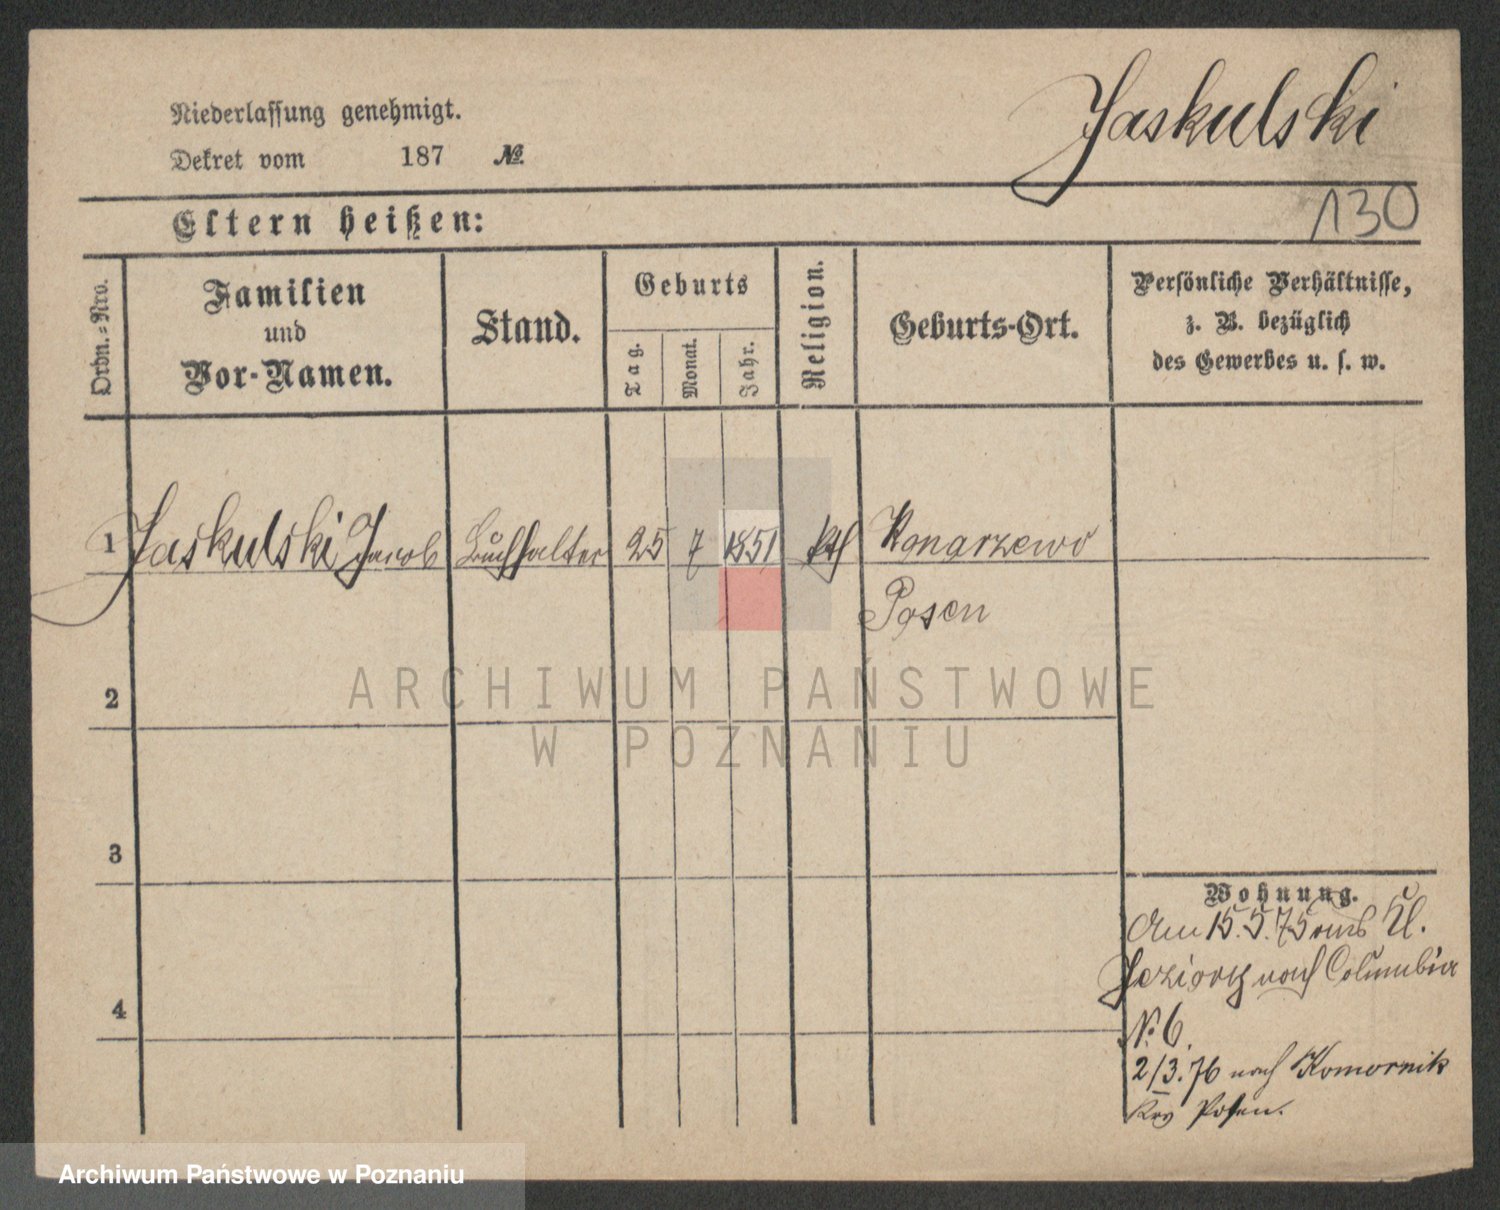 Jaskulski
Niederlassung genehmigt.
Dekret vom 187 №
130
Eltern heißen:
Ordn.-Nro.
Familien
und
Vor-Namen.
Stand.
Geburts
Tag.
Monat.
Jahr.
Religion.
Geburts-Ort.
Persönliche Verhältnisse,
z. B. bezüglich
des Gewerbes u. s. w.
1 Jaskulski Jacob Buchhalter 25 7 1851 kth Konarzewo
Posen
2
3
4
Wohnung.
Am 15.5.75 aus Kl.
Jeziory nach Columbia
No 6.
2/3.76 nach Komornik
Krs Posen.
ARCHIWUM PAŃSTWOWE
W POZNANIU
Archiwum Państwowe w Poznaniu